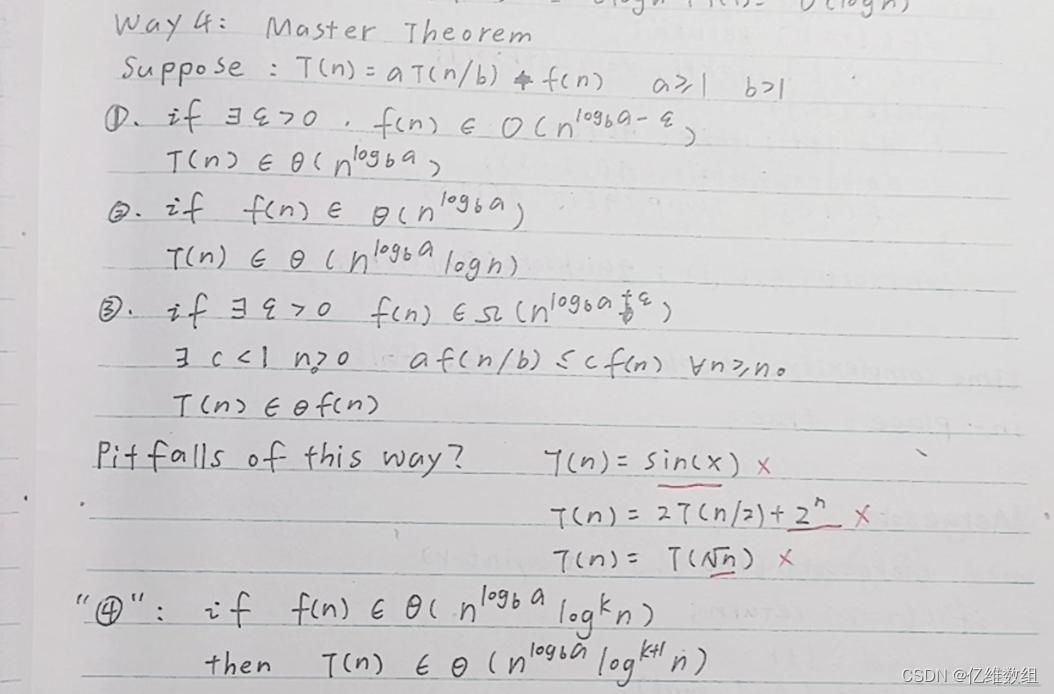 Way 4: Master Theorem
Suppose : T(n) = aT(n/b) + f(n) a≥1 b>1
①. if ∃ε>0. f(n) ∈ O(n^{log_b a - ε})
T(n) ∈ θ(n^{log_b a})
②. if f(n) ∈ θ(n^{log_b a})
T(n) ∈ θ(n^{log_b a} log n)
③. if ∃ε>0 f(n) ∈ Ω(n^{log_b a + ε})
∃ c<1 n₀>0 af(n/b) ≤ cf(n) ∀n≥n₀
T(n) ∈ θf(n)
Pitfalls of this way? T(n) = sin(x) ×
T(n) = 2T(n/2) + 2^n ×
T(n) = T(√n) ×
"④": if f(n) ∈ θ(n^{log_b a} log^k n)
then T(n) ∈ θ(n^{log_b a} log^{k+1} n)
CSDN @亿维数组